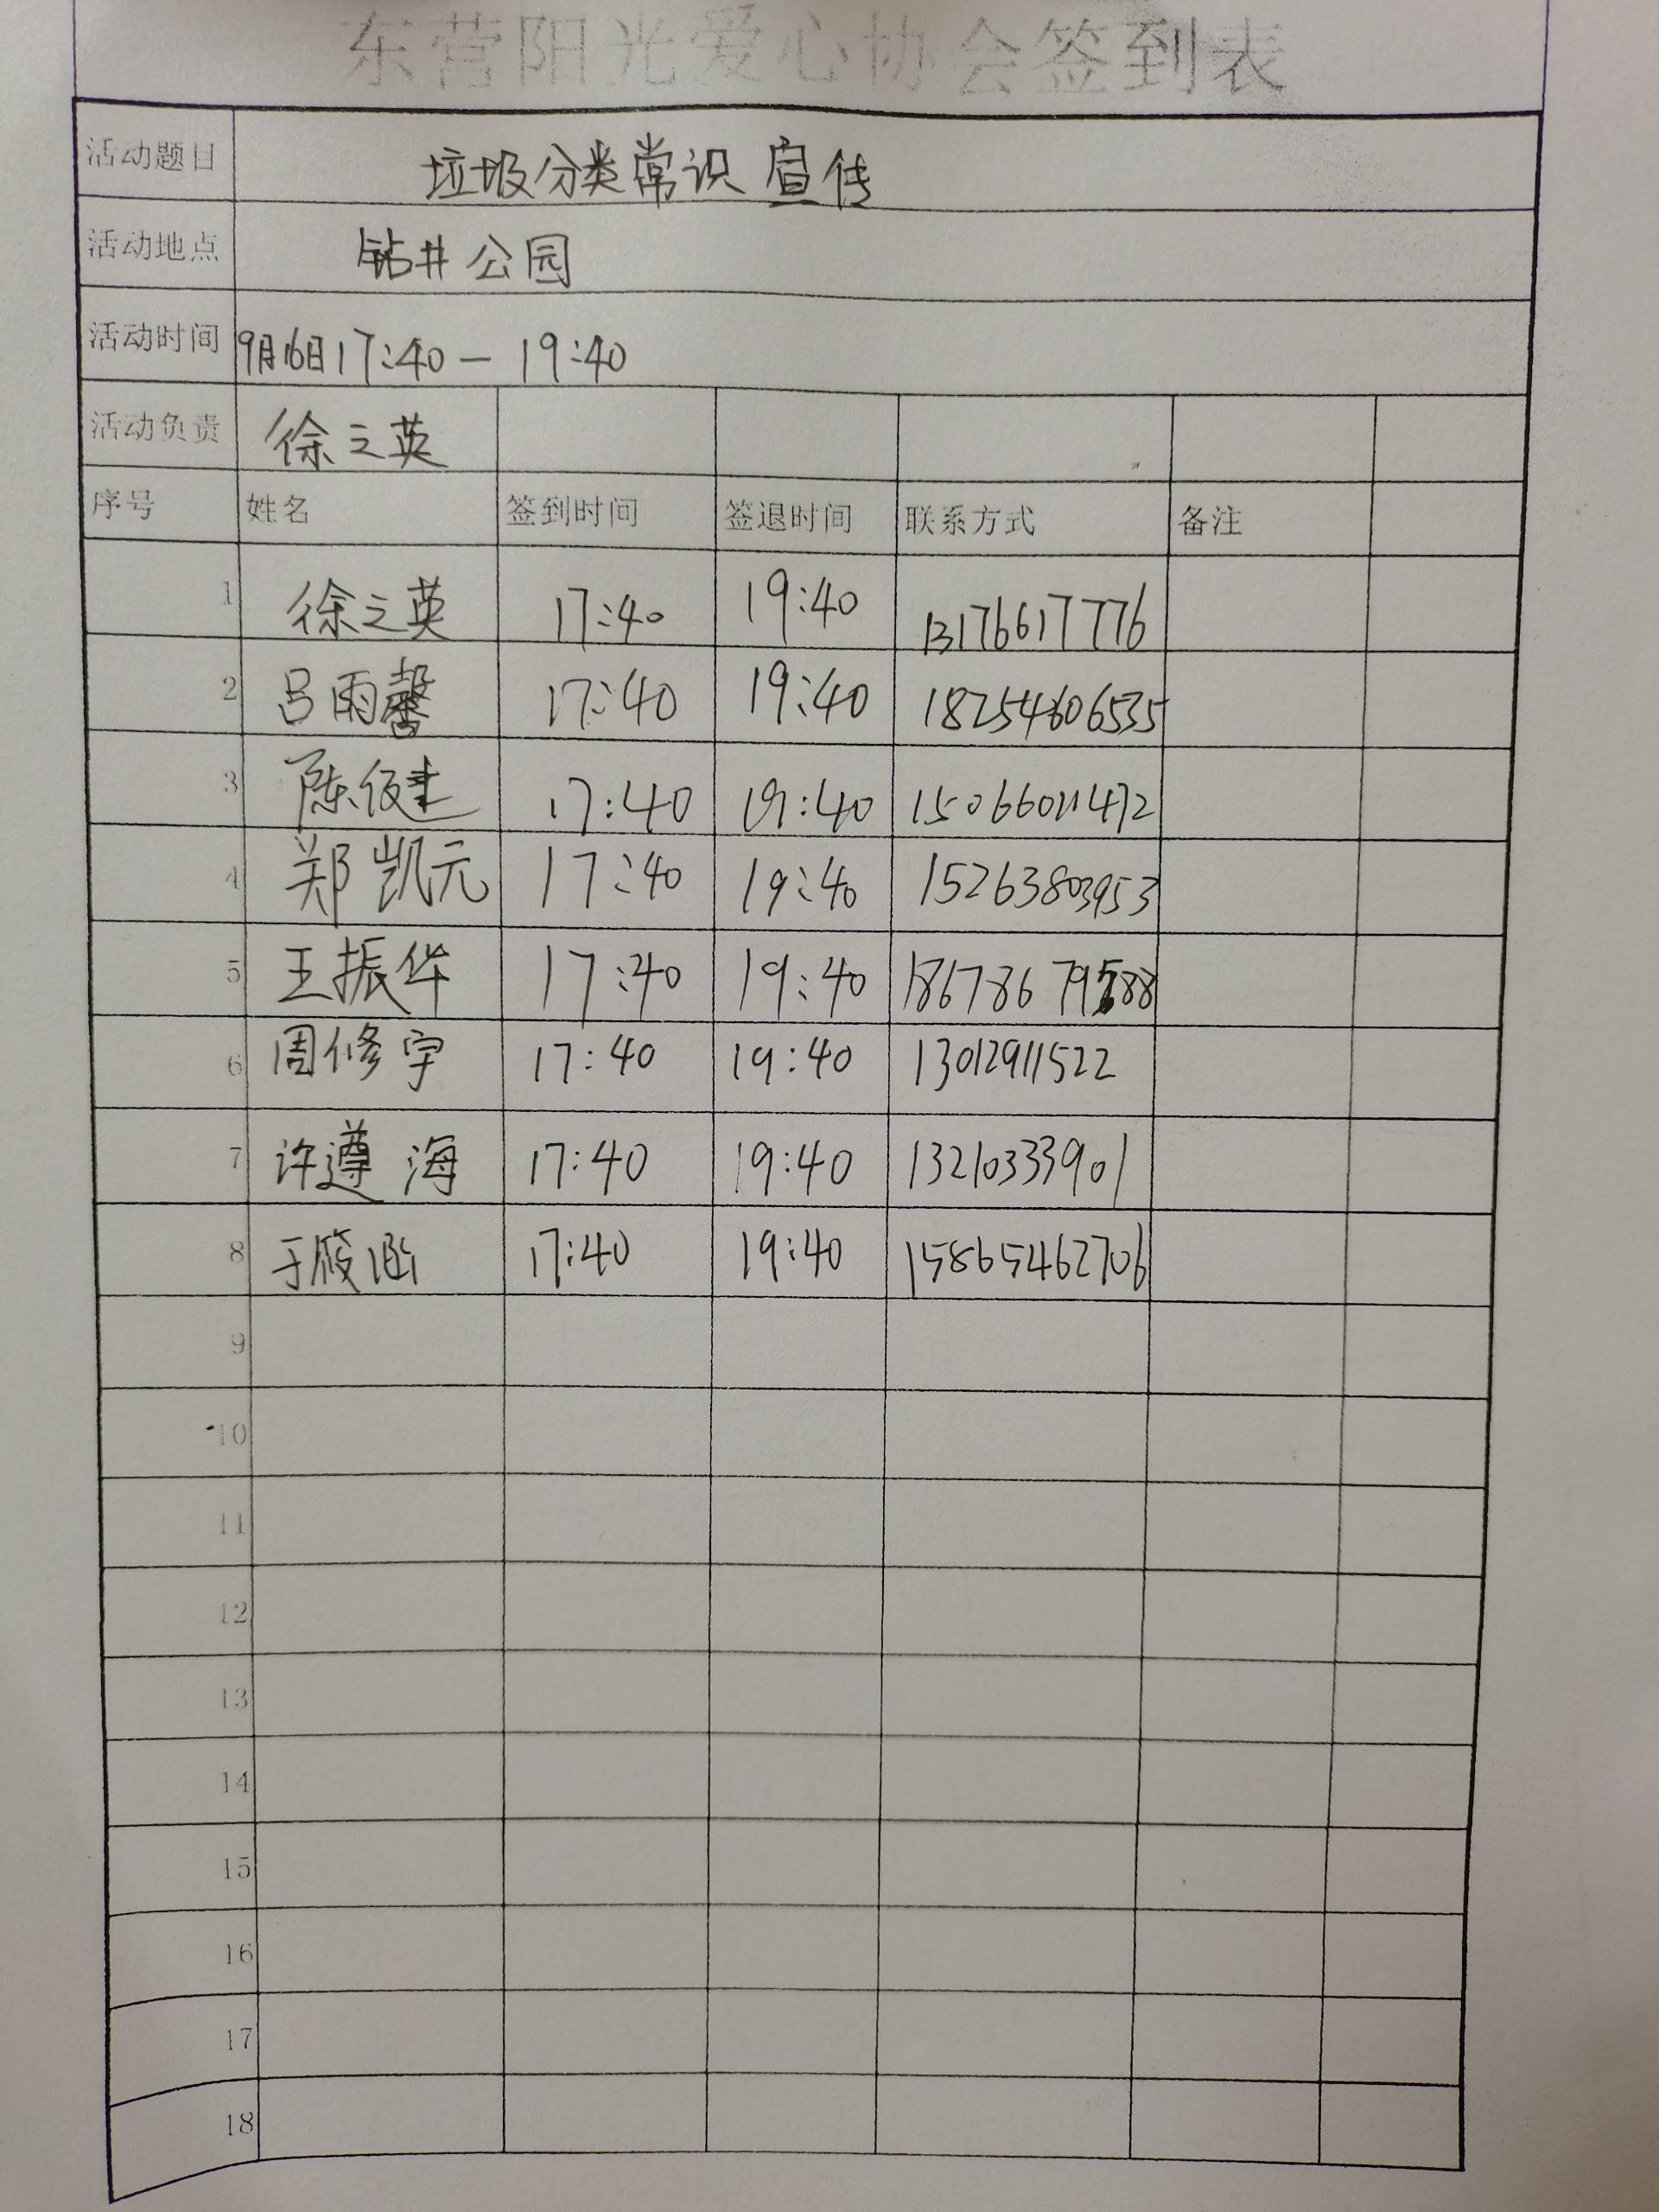 东营阳光爱心协会签到表
活动题目 垃圾分类常识宣传
活动地点 钻井公园
活动时间 9月16日17:40-19:40
活动负责 徐之英
序号 姓名 签到时间 签退时间 联系方式 备注
1 徐之英 17:40 19:40 13176617776
2 吕雨馨 17:40 19:40 18254606535
3 陈俊建 17:40 19:40 15066011472
4 郑凯元 17:40 19:40 15263803953
5 王振华 17:40 19:40 18678679588
6 周修宇 17:40 19:40 13012911522
7 许遵海 17:40 19:40 13210333901
8 于筱涵 17:40 19:40 15865462706
9
10
11
12
13
14
15
16
17
18